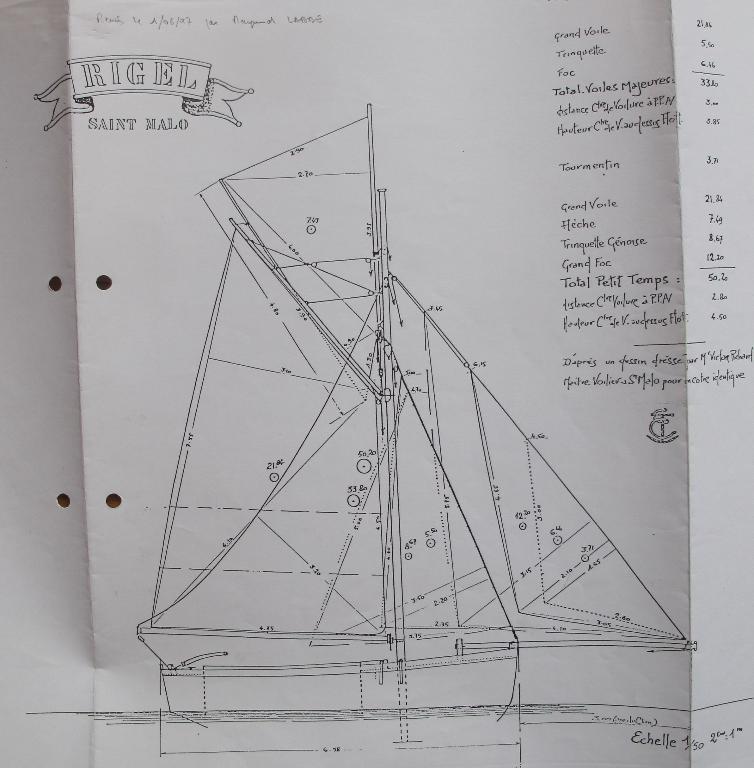 Remis le 1/06/97 par Raymond LABBÉ
RIGEL
SAINT MALO
Grand Voile 21.84
Trinquette 5.50
Foc 6.46
Total Voiles Majeures: 33.80
distance Ctre de Voilure à P.P.N 3.00
Hauteur Ctre de V. au dessus Flott. 3.85
Tourmentin 3.71
Grand Voile 21.84
Flèche 7.49
Trinquette Génoise 8.67
Grand Foc 12.20
Total Petit Temps: 50.20
distance Ctre Voilure à P.P.N 2.80
Hauteur Ctre de V. au dessus Flott. 4.50
D'après un dessin dressé par Mr Victor Richard
Maître Voilier à St Malo pour un cotre identique
2.90
2.70
7.49
3.95
6.00
4.80
3.90
7.45
6.15
1.30
3.00
4.70
3.00
7.55
4.50
50.20
21.84
33.80
12.20
6.46
3.71
8.67
5.50
5.00
4.50
4.80
3.85
6.50
3.20
3.15
2.10
1.65
3.50
2.20
2.60
3.05
4.75
2.35
3.75
4.20
6.98
Echelle 1/50 2cm = 1m